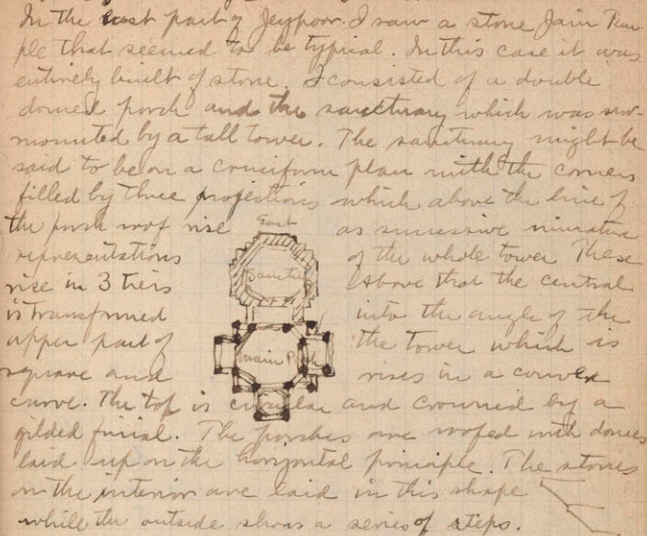 In the east part of Jeypoor I saw a stone Jain Tem-
ple that seemed to be typical. In this case it was
entirely built of stone, I consisted of a double
domed porch and the sanctuary which was sur-
mounted by a tall tower. The sanctuary might be
said to be on a cruciform plan with the corners
filled by three projections which above the line of
the porch roof rise as successive miniature
East
representations of the whole tower These
Sanctu
rise in 3 tiers above that the central
is transformed into the angle of the
upper part of the tower which is
Main Porch
square and rises in a convex
curve. The top is circular and crowned by a
gilded finial. The porches are roofed with domes
laid up on the horizontal principle. The stones
on the interior are laid in this shape
while the outside shows a series of steps.